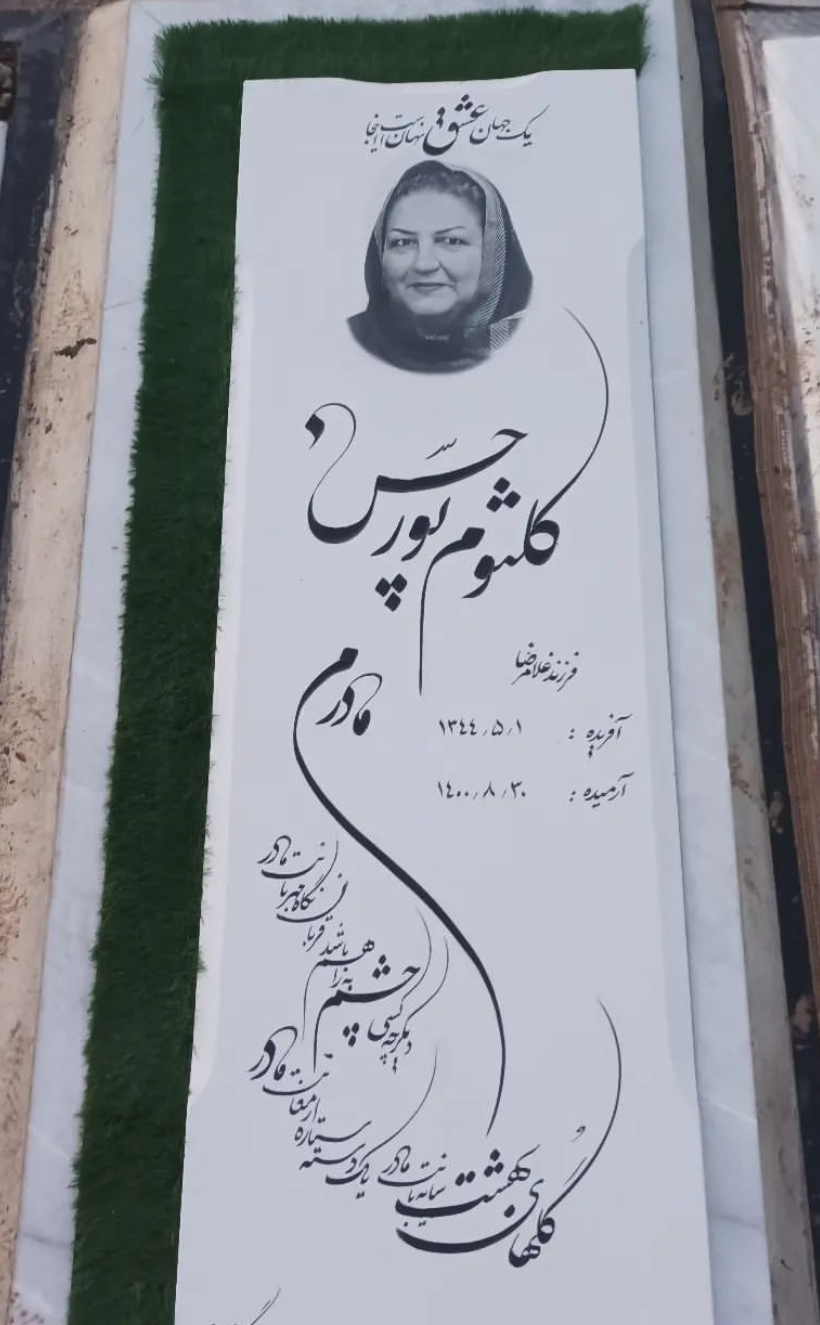 یک جهان عشق نهان است اینجا
کلثوم پورحسن
فرزند غلامرضا
آفریده : ۱۳۴۴/۵/۱
آرمیده : ۱۴۰۰/۸/۳۰
مادرم
گلهای بهشت سایه بانت مادر
یک دسته ستاره ارمغانت مادر
دیگر چه کسی چشم به راهم باشد
قربان نگاه مهربانت مادر